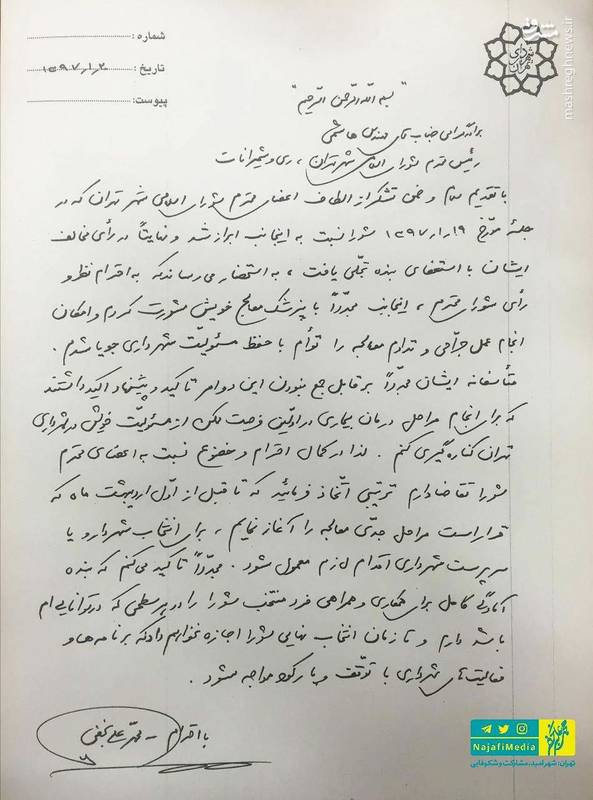 mashreghnews.ir
شماره :
تاریخ : ۱۳۹۷،۱،۲۰
پیوست :
"بسم الله الرحمن الرحیم"
برادر گرامی جناب آقای مهندس هاشمی
رئیس محترم شورای اسلامی شهر تهران ، ری و شمیرانات
با تقدیم سلام و ضمن تشکر از الطاف اعضای محترم شورای اسلامی شهر تهران که در
جلسهٔ مورّخ ۱۹،۱،۱۳۹۷ شورا نسبت به اینجانب ابراز شد و نهایتاً در رأی مخالف
ایشان با استعفای بنده تجلّی یافت ، به استحضار می رساند که به احترام نظر و
رأی شورای محترم ، اینجانب مجدّداً با پزشک معالج خویش مشورت کردم و امکان
انجام عمل جرّاحی و تداوم معالجه را توأم با حفظ مسئولیّت شهرداری جویا شدم .
متأسفانه ایشان مجدّداً بر قابل جمع نبودن این دو امر تاکید و پیشنهاد اکید داشتند
که برای انجام مراحل درمان بیماری در اوّلین فرصت ممکن از مسئولیّت خویش در شهرداری
تهران کناره گیری کنم . لذا در کمال احترام و خضوع نسبت به اعضای محترم
شورا تقاضا دارم ترتیبی اتّخاذ فرمائید که تا قبل از اوّل اردیبهشت ماه که
قرار است مراحل جدّی معالجه را آغاز نمایم ، برای انتخاب شهردار و یا
سرپرست شهرداری اقدام لازم معمول شود . مجدّداً تاکید می کنم که بنده
آمادگی کامل برای همکاری و همراهی فرد منتخب شورا را در هر سطحی که در توانایی ام
باشد دارم و تا زمان انتخاب نهایی شورا اجازه نخواهم داد که برنامه ها و
فعالیت های شهرداری با توقّف و یا رکود مواجه شود .
با احترام – محمد علی نجفی
NajafiMedia
تهران: شهر امید، مشارکت و شکوفایی